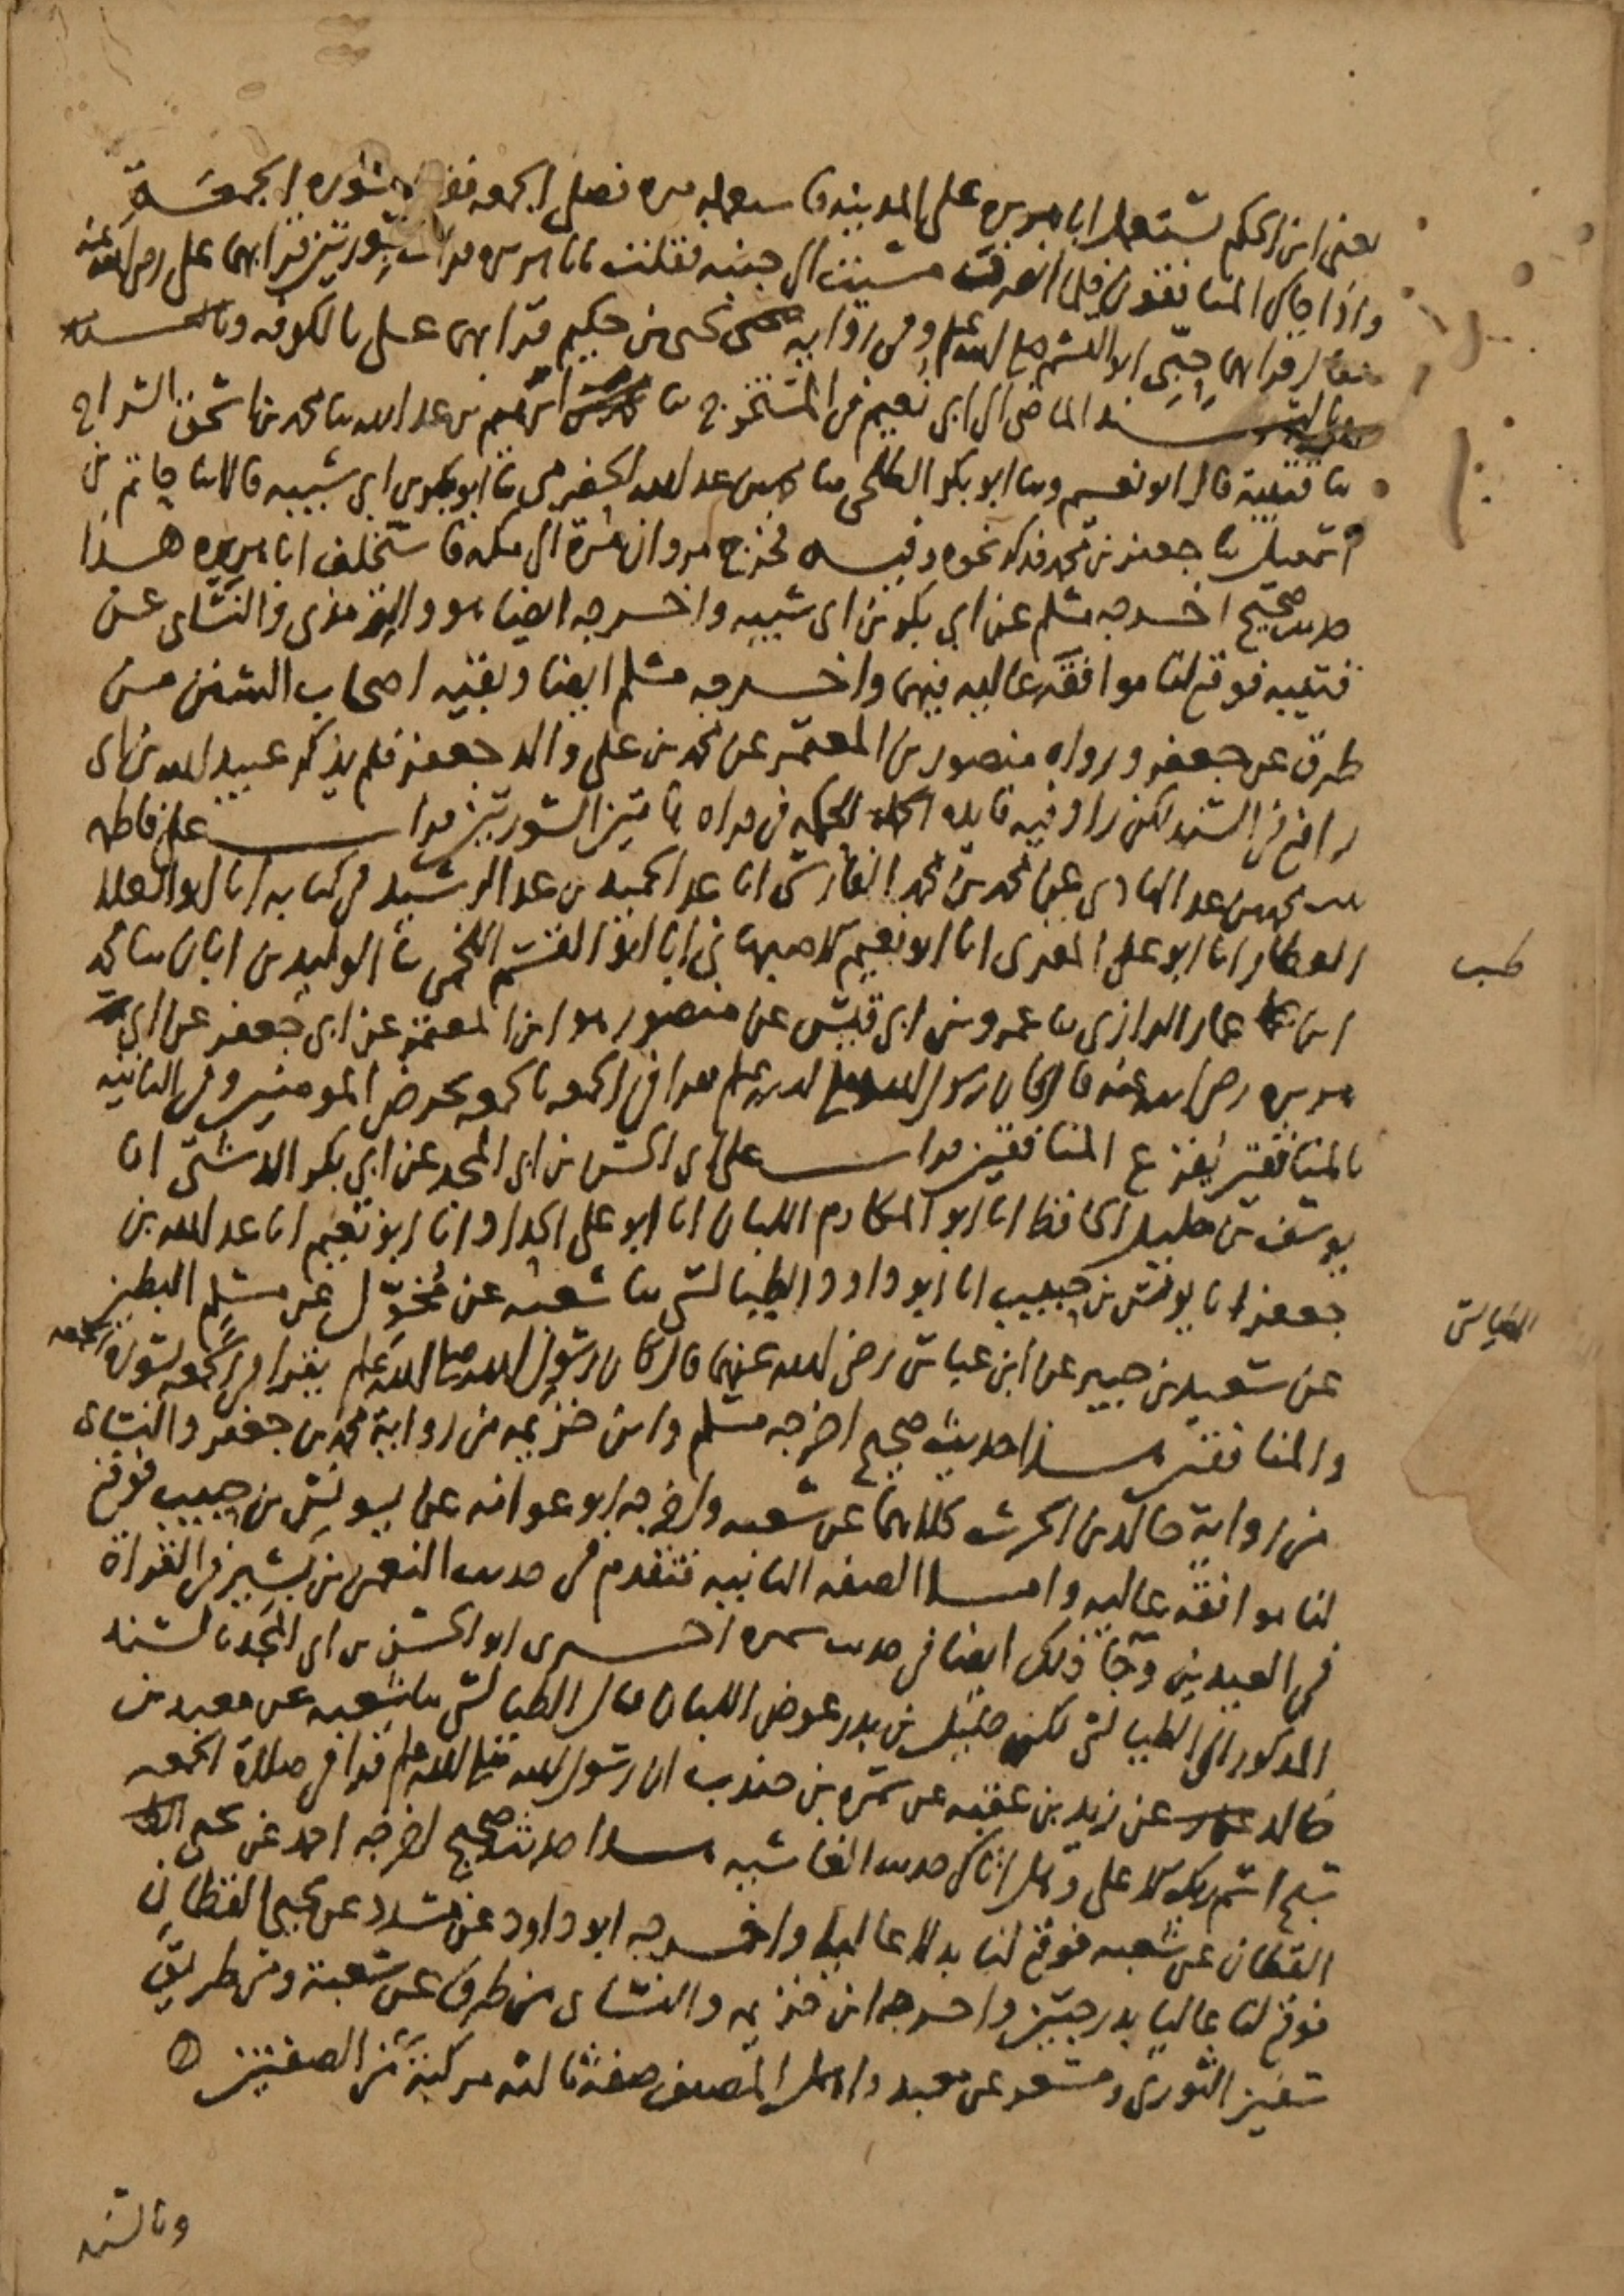 يعني ابن الحكم يستعمل ابا هريرة على المدينة فاستعمله مرة فصلى الجمعة فقرأ بسورة الجمعة
واذا جاك المنافقون فلما انصرفت مشيت الى جنبه فقلت يابا هريرة قرات بسورتين قرا بهما على رضي الله عنه
فقال قرا بهما حبي ابو القسم صلى الله عليه وسلم وفي رواية يحيى بن حكيم قرا بهما على بالكوفة وبالسند
الماضي الى ابي نعيم في المستخرج ثنا ابراهيم بن عبد الله ثنا محمد بن اسحق السراج
ثنا قتيبة قال ابو نعيم وثنا ابو بكر الطلحي ثنا محمد بن عبد الله الحضرمي ثنا ابو بكر بن ابي شيبه قالا ثنا حاتم بن
اسمعيل ثنا جعفر بن محمد فذكر نحوه وفيه فخرج مروان مرة الى مكه فاستخلف ابا هريره هذا
حديث صحيح اخرجه مسلم عن ابي بكر بن ابي شيبه واخرجه ايضا هو والترمذي والنسائي عن
قتيبه فوقع لنا موافقة عاليه فيهما واخرجه مسلم ايضا وبقيه اصحاب السنن من
طرق عن جعفر ورواه منصور بن المعتمر عن محمد بن علي والد جعفر فلم يذكر عبيد الله بن ابي
رافع في السند لكن زاد فيه فايده الحكمه في قراه هاتين السورتين قرات على فاطمه
بنت محمد بن عبد الهادي عن محمد بن محمد الفارسي انا عبد الحميد بن عبد الرشيد في كتابه انا ابو العلا
العطار انا ابو علي المقري انا ابو نعيم الاصبهاني انا ابو القسم اللخمي ثنا الوليد بن ابان ثنا محمد
ابن عمار الرازي ثنا عمرو بن ابي قيس عن منصور هو ابن المعتمر عن ابي جعفر عن ابي
هريره رضي الله عنه قال كان رسول الله صلى الله عليه وسلم يقرا في الجمعه بالجمعه يحرض المومنين وفي الثانيه
بالمنافقين يفزع المنافقين قرات على ابي الحسن بن ابي المجد عن ابي بكر الدشتي انا
يوسف بن خليل الحافظ انا ابو المكارم اللبان انا ابو علي الحداد انا ابو نعيم انا عبد الله بن
جعفر انا يونس بن حبيب انا ابو داود الطيالسي ثنا شعبه عن مخول عن مسلم البطين
عن سعيد بن جبير عن ابن عباس رضي الله عنهما قال كان رسول الله صلى الله عليه وسلم يقرا في الجمعه بسورة الجمعه
والمنافقين هذا حديث صحيح اخرجه مسلم وابن خزيمه من رواية محمد بن جعفر والنسائي
من رواية خالد بن الحرث كلاهما عن شعبه واخرجه ابو عوانه عن يونس بن حبيب فوقع
لنا موافقه عاليه واما الصفه الثانيه فتقدم في حديث النعمن بن بشير في القراة
في العيدين وجا ذلك ايضا في حديث سمره اخبرني ابو الحسن بن ابي المجد بالسند
المذكور الى الطيالسي لكن خليل بن بدر عوض اللبان قال الطيالسي ثنا شعبه عن معبد بن
خالد عن زيد بن عقبه عن سمره بن جندب ان رسول الله صلى الله عليه وسلم قرا في صلاة الجمعه
سبح اسم ربك الاعلى وهل اتاك حديث الغاشيه هذا حديث صحيح اخرجه احمد عن يحيى
القطان عن شعبه فوقع لنا بدلا عاليا واخرجه ابو داود عن مسدد عن يحيى القطان
فوقع لنا عاليا بدرجتين واخرجه ابن خزيمه والنسائي من طرق عن شعبة ومن طريق
سفين الثوري ومسعر عن معبد واهمل المصنف صفة ثالثه مركبة من الصفتين
وبالسند
طب
الطيالسي